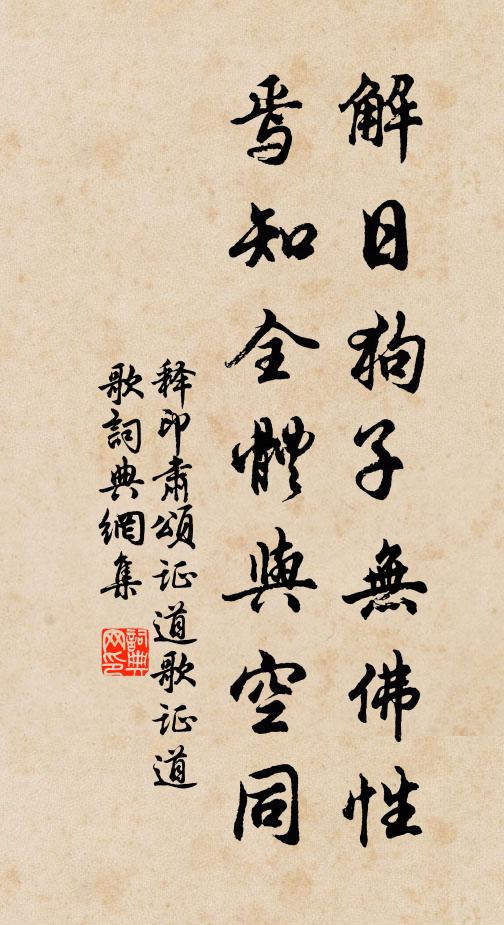 解日狗子無佛性
焉知全體與空同
释印肃頌证道歌证道
歌詞典網集
詞典网印